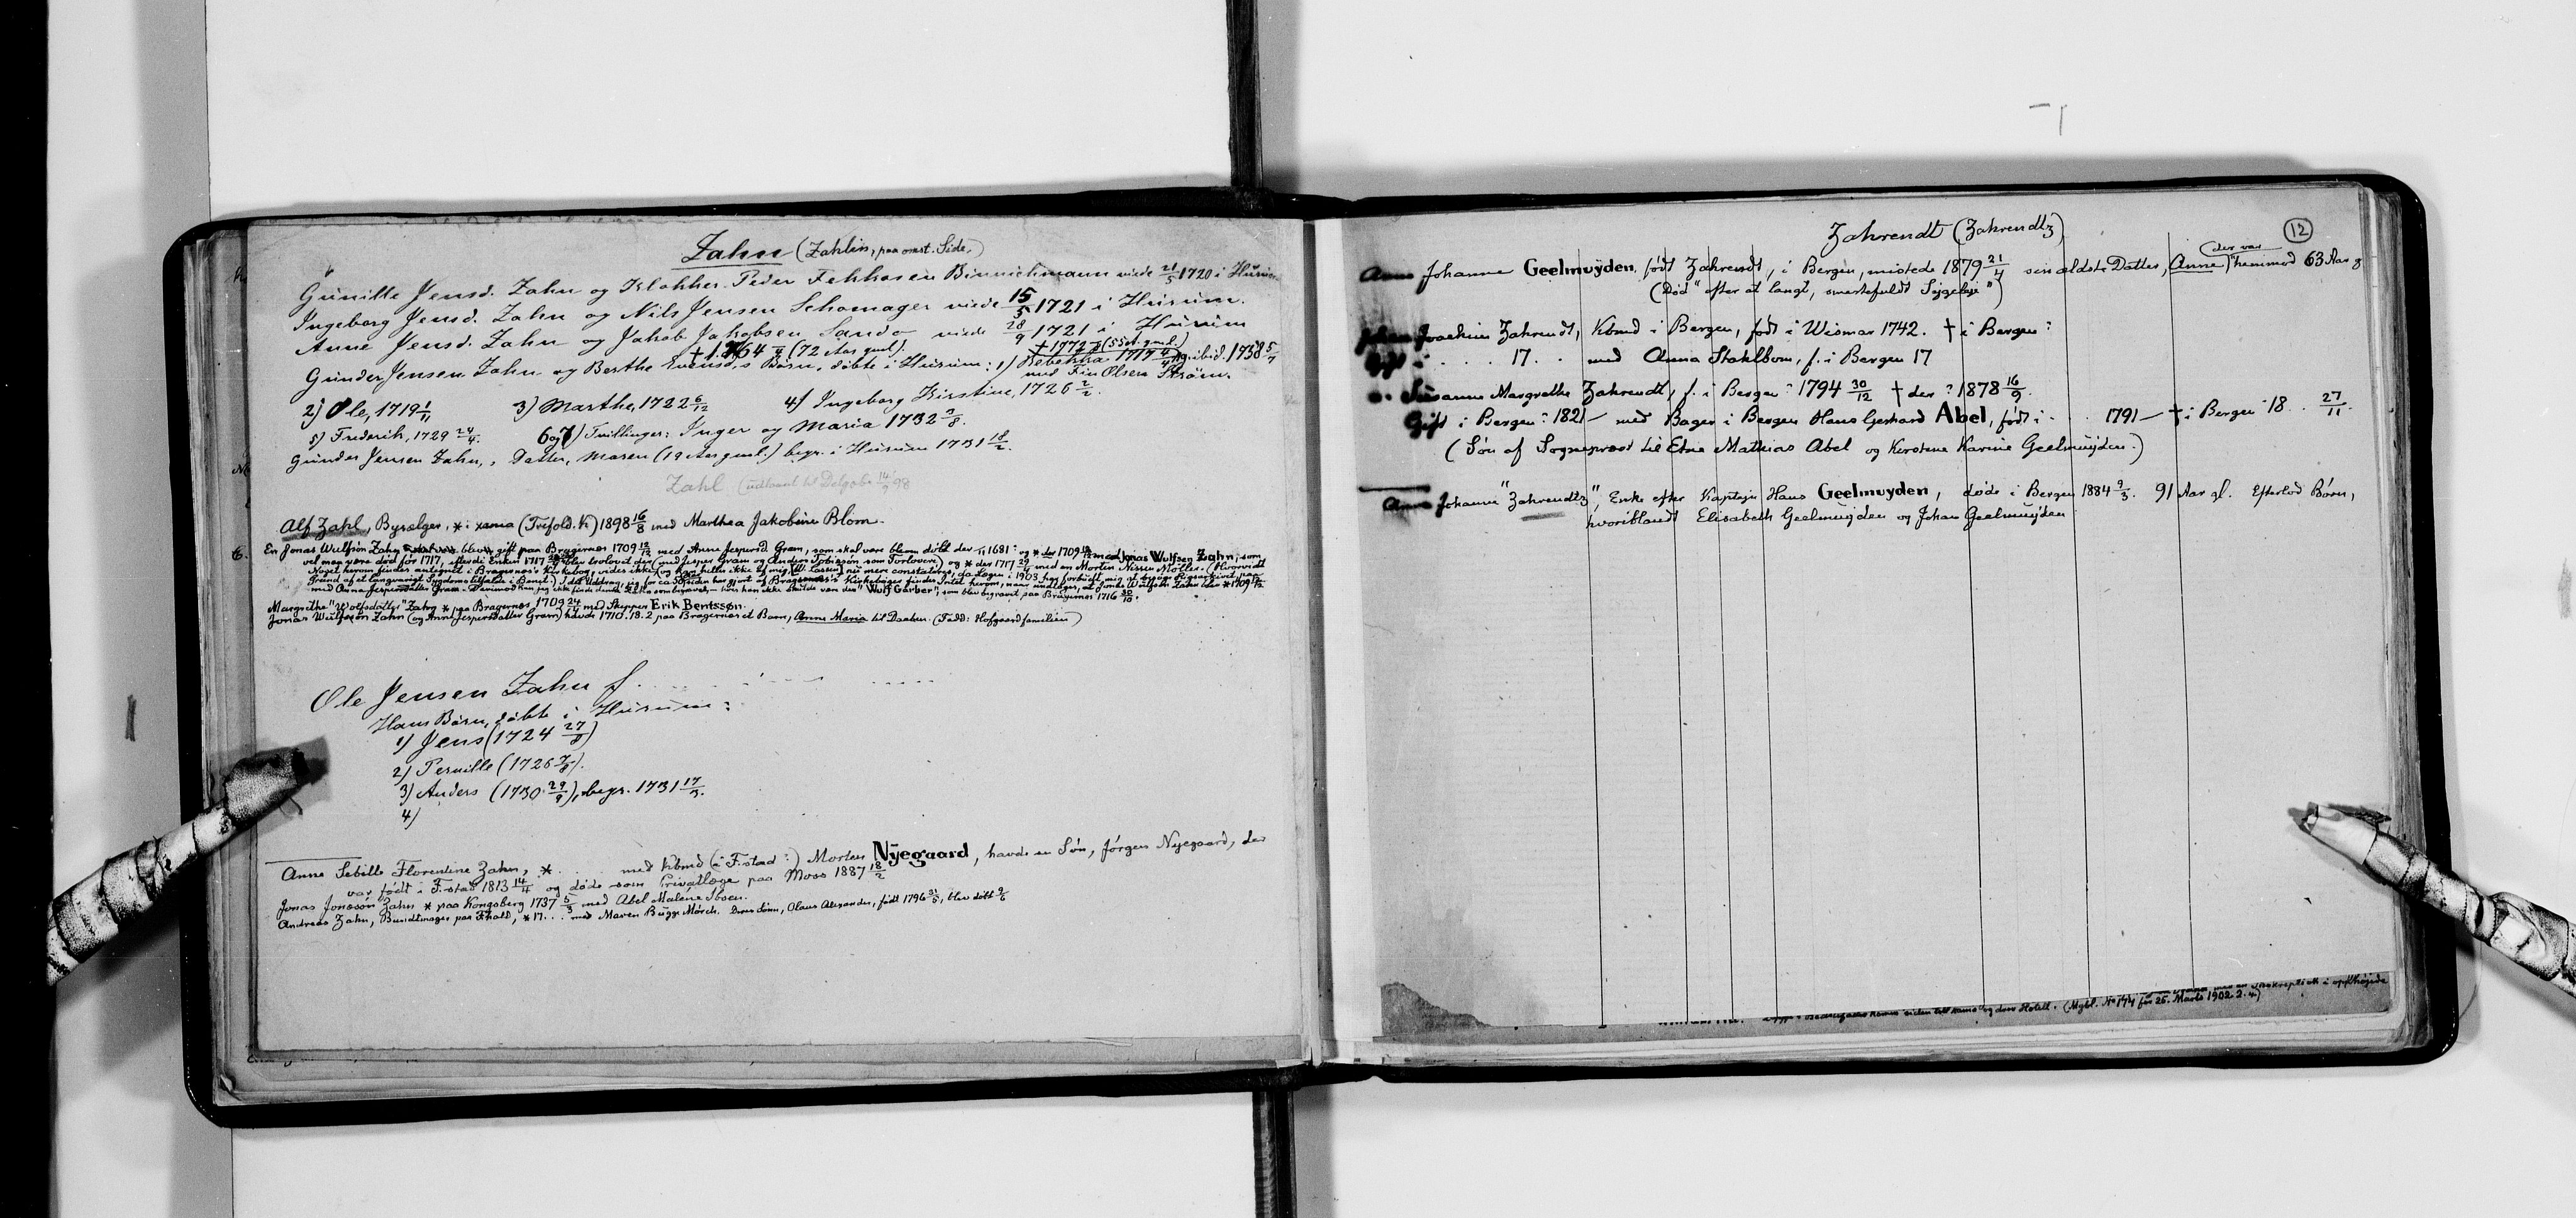 Zahn (Zahlin, paa omst. Side)
Gunille Jensd. Zahn og Klokker Peder Fekhosen Binnichmann viede 21/5 1720 i Hurum
Ingeborg Jensd. Zahn og Nils Jensen Schoenager viede 15/3 1721 i Hurum.
Anne Jensd. Zahn og Jakob Jakobsen Sando viede 28/9 1721 i Hurum
† 1764 (72 Aar gml.) † 1772 (55 A. gml.)
Gunder Jensen Zahn og Berthe Evensd.s Børn, døbte i Hurum: 1) Rebekka 1717 4/4 * ibid. 1758 5/7
med Fin Olsen Strøm.
2) Ole, 1719 1/11 3) Marthe, 1722 6/12 4) Ingeborg Kirstine, 1726 2/2.
5) Frederik, 1729 24/4. 6 og 7) Tvillinger: Inger og Maria 1732 7/8.
Gunder Jensen Zahn,s Datter, Maren (19 Aar gml.) begr. i Hurum 1731 18/2.
Zahl (udlaant til Delgobe 14/9 98
Alf Zahl, Bysælger, * i xania (Trefold. K) 1898 16/8 med Marthea Jakobine Blom.
En Jonas Wulfsön Zahn blev gift paa Bragernes 1709 12/12 med Anne Jespersd. Gram, som skal være bleven döbt der 1/11 1681 og * der 1709 med Jonas Wulfsen Zahn, som
vel maa være död för 1717, efterdi Enken 1717 blev trolovet der (med Jesper Gram og Anders Tobiassön som Forlovere) og * der 1717 29/4 med en Morten Nissen Möller. (Hvorvidt
Noget herom findes antegnet i Bragernes's Kirkebog, vides ikke, og kan heller ikke af mig, [W. Lassen] nu mere constateres, da Lægen i 1903 har forbudt mig at besöge Rigsarkivet paa
Grund af et langvarigt Sygdomstilfælde i Benet.) I det Uddrag, jeg for ca 30 Aar siden har gjort af Bragernes's Kirkeböger findes Intet herom, naar undtages, at Jonas Wulfsön Zahn blev * 1709 12/12
med Anna Jespersdatter Gram. Derimod kan jeg ikke finde denne Zahn som begravet, hvis han ikke skulde være den "Wulf Garber", som blev begravet paa Bragernes 1716 30/10.
Margrethe "Wolfsdatter" Zahn * paa Bragernes 1703 24/4 med Skipper Erik Bentssøn.
Jonas Wulfssön Zahn (og Anne Jespersdatter Gram) havde 1710.18.2 paa Bragernes et Barn, Anne Maria til Daaben. (Fadd: Hofgaardfamilien)
Ole Jensen Zahn f.
Hans Børn, døbte i Hurum:
1) Jens (1724 27/8)
2) Pernille (1726 7/8).
3) Anders (1730 29/9), begr. 1731 17/3.
4)
Anne Sibille Florentine Zahn, * . . . med Kbmd (i F.stad ?) Morten Nyegaard, havde en Sön, Jörgen Nyegaard, der
var födt i F.stad 1813 14/4 og döde som Privatlæge paa Moss 1887 18/2
Jonas Jonassön Zahn * paa Kongsberg 1737 5/3 med Abel Malene Ibsen.
Andreas Zahn, Bundtmager paa Fr.hald, * 17. . : med Maren Bugge Mörch. Deres Sönn, Olaus Alexander, födt 1796 31/5, blev döbt 9/6
12
Zahrendt (Zahrendtz)
der var
Anne Johanne Geelmuyden, født Zahrendt, i Bergen, mistede 1879 21/4 sin ældste Datter, Anne, henimod 63 Aar g
(Död "efter at langt, smertefuldt Sygeleje")
Johan Joachim Zahrendt, Kbmd i Bergen, födt i Wismar 1742. † i Bergen:
Gift i . . 17. . med Anna Stahlbom, f. i Bergen 17
a. Susanne Margrethe Zahrendt, f. i Bergen: 1794 30/12 † der: 1878 16/9.
Gift i Bergen: 1821 – med Bager i Bergen Hans Gerhard Abel, födt i . . . 1791 – † i Bergen 18 . . 27/11.
(Sön af Sognepræst til Etne Mathias Abel og Kirstene Karine Geelmuyden.)
Anne Johanne "Zahrendtz", Enke efter Kaptejn Hans Geelmuyden, döde i Bergen 1884 9/3. 91 Aar gl. Efterlod Börn,
hvoriblandt Elisabeth Geelmuyden og Johan Geelmuyden
og dens Hotell. (Mgbl. No 144 for 25. Marts 1902.2.4)